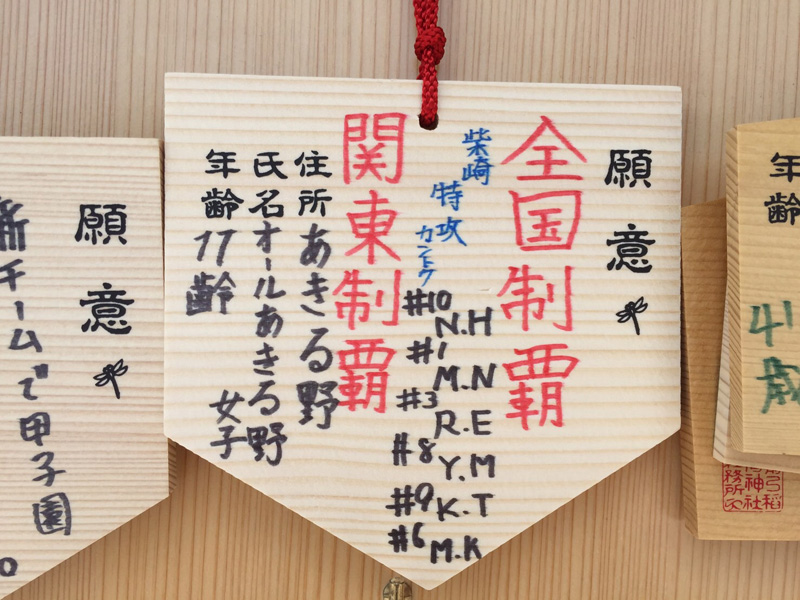 年齢 41歳
願意
全国制覇
柴崎
特攻
カントク
#10 N.H
#1 M.N
#3 R.E
#8 Y.M
#9 K.T
#6 M.K
関東制覇
住所 あきる野
氏名 オールあきる野
女子
年齢 17齢
願意
新チームで甲子園